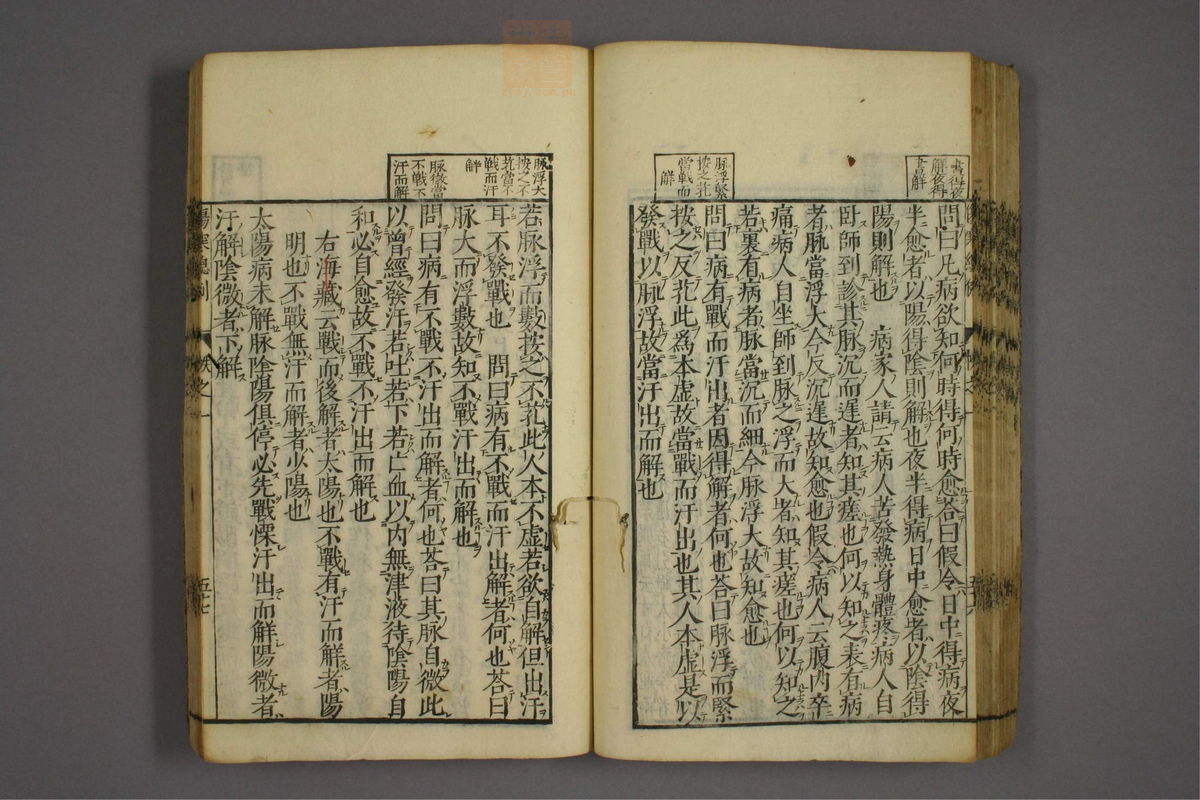 晝得夜
解夜得
晝解
脉浮緊
按之芤
當戰而
解
問曰凡病欲知何時得何時愈荅曰假令日中得病夜
半愈者以陽得陰則解也夜半得病日中愈者以陰得
陽則解也　病家人請云病人苦發熱身體疼病人自
臥師到診其脉沉而遲者知其瘥也何以知之表有病
者脉當浮大今反沉遲故知愈也假令病人云腹内卒
痛病人自坐師到脉之浮而大者知其瘥也何以知之
若裏有病者脉當沉而細今脉浮大故知愈也
問曰病有戰而汗出者因得解者何也荅曰脉浮而緊
按之反芤此爲本虚故當戰而汗出也其人本虚是以
發戰以脉浮故當汗出而解也
脉浮大
按之不
芤當不
戰而汗
解
脉微當
不戰不
汗而解
若脉浮而數按之不芤此人本不虚若欲自解但出汗
耳不發戰也　問曰病有不戰而汗出解者何也荅曰
脉大而浮數故知不戰汗出而解也
問曰病有不戰不汗出而解者何也荅曰其脉自微此
以曾經發汗若吐若下若亡血以内無津液待陰陽自
和必自愈故不戰不汗出而解也
右海藏云戰而後解者太陽也不戰有汗而解者陽
明也不戰無汗而解者少陽也
太陽病未解脉陰陽俱停必先戰慄汗出而解陽微者
汗解陰微者下解
五十七